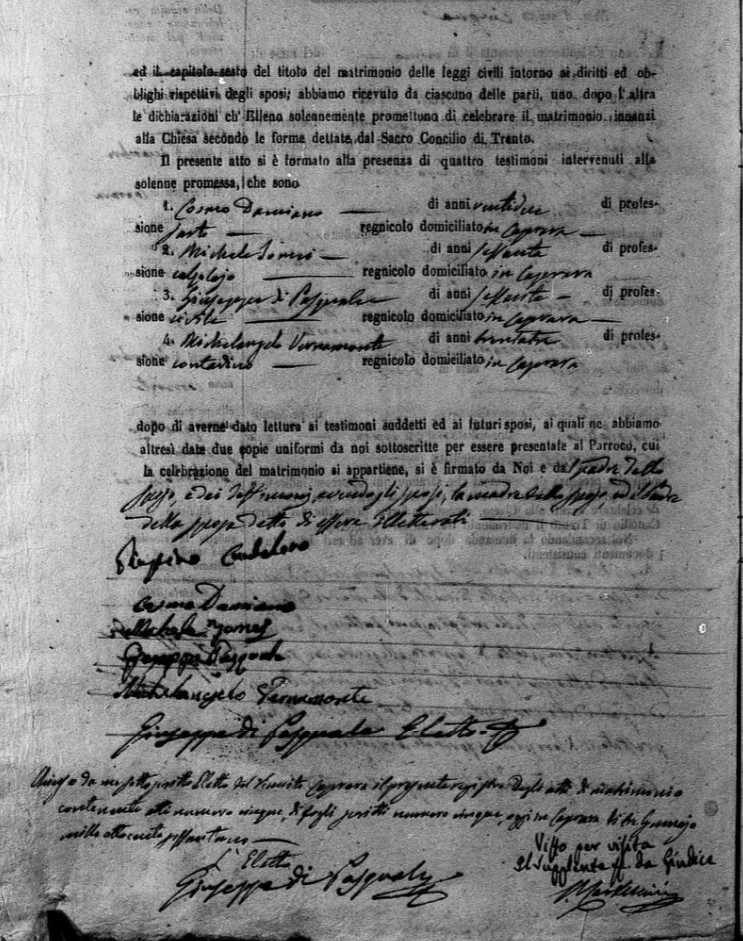 ed il capitolo sesto del titolo del matrimonio delle leggi civili intorno ai diritti ed ob-
blighi rispettivi degli sposi; abbiamo ricevuto da ciascuno delle parti, uno dopo l'altra
le dichiarazioni ch' Elleno solennemente promettono di celebrare il matrimonio innanzi
alla Chiesa secondo le forme dettate dal Sacro Concilio di Trento.
Il presente atto si è formato alla presenza di quattro testimoni intervenuti alla
solenne promessa, che sono
1. Cosmo Damiano di anni ventidue di profes-
sione sarto regnicolo domiciliato in Caprara
2. Michele di anni sessanta di profes-
sione calzolajo regnicolo domiciliato in Caprara
3. Giuseppe di Pasquale di anni sessanta di profes-
sione civile regnicolo domiciliato in Caprara
4. Michelangelo Vernamonte di anni trentatre di profes-
sione contadino regnicolo domiciliato in Caprara
dopo di averne dato lettura ai testimoni suddetti ed ai futuri sposi, ai quali ne abbiamo
altresì date due copie uniformi da noi sottoscritte per essere presentate al Parroco, cui
la celebrazione del matrimonio si appartiene, si è firmato da Noi e dal padre dello
sposo, e dei testimonj, avendo gli sposi, la madre dello sposo, ed il padre
della sposa detto di essere illetterati
Cosmo Damiano
Michele
Giuseppe Pasquale
Michelangelo Vernamonte
Giuseppe di Pasquale Eletto
Chiuso da me sottoscritto Eletto del Caprara il presente registro degli atti di matrimonio
contenente atti numero cinque, di fogli scritti numero cinque, oggi in Caprara li Gennajo
mille ottocento sessantuno
L'Eletto
Giuseppe di Pasquale
Visto per visita
Il Supplente ff da Giudice